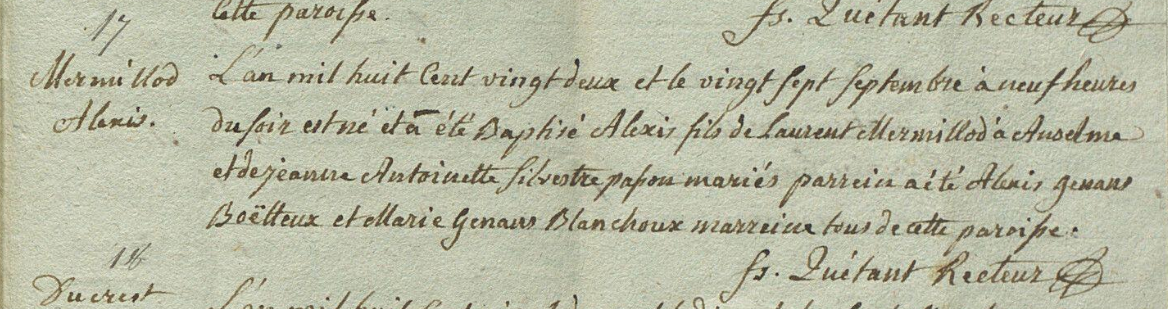 cette paroisse.
fs. Quétant Recteur
17
Mermillod
Alexis.
L'an mil huit Cent vingt deux et le vingt sept septembre à neuf heures
du soir est né et a été Baptisé Alexis fils de Laurent Mermillod à Anselme
et de jeanne Antoinette Silvestre papou mariés parrein a été Alexis genans
Boëtteux et Marie Genans Blanchoux marreine tous de cette paroisse.
fs. Quétant Recteur
18
Ducrest
L'an mil huit Cent